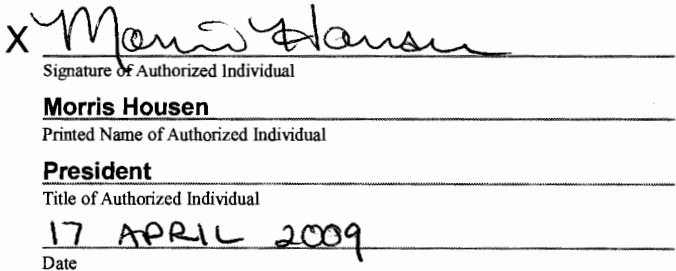 X Morris Housen
Signature of Authorized Individual
Morris Housen
Printed Name of Authorized Individual
President
Title of Authorized Individual
17 APRIL 2009
Date